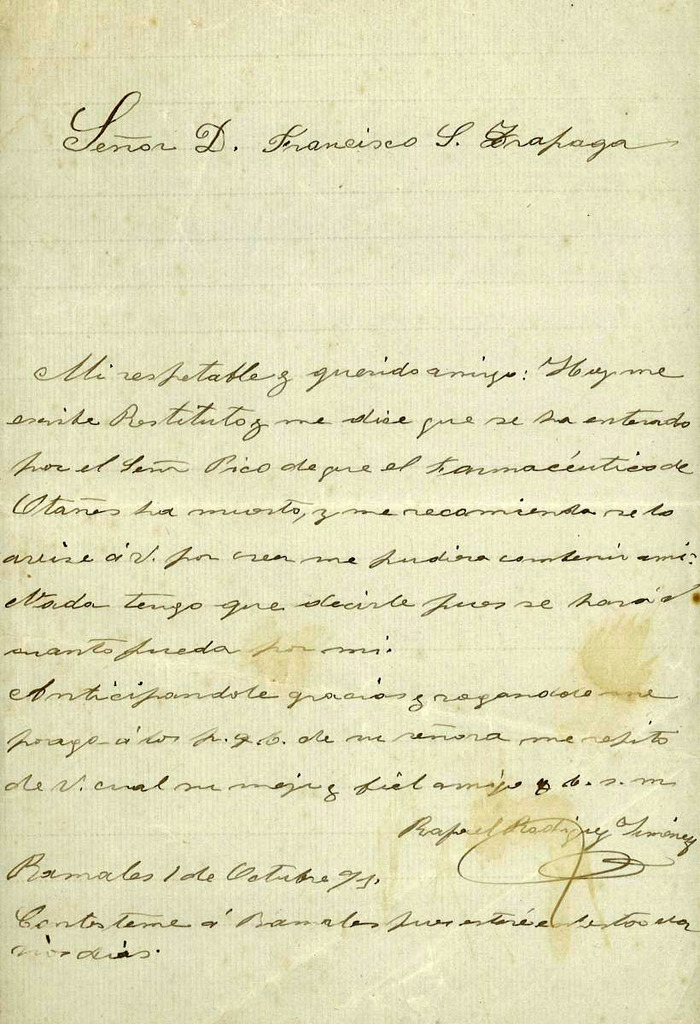 Señor D. Francisco S. Trapaga
Mi respetable y querido amigo: Hoy me
escribe Restituto y me dice que se ha enterado
por el Señor Pico de que el Farmacéutico de
Otañes ha muerto, y me recomienda se lo
avise á V. por creer me pudiera convenir ami:
Nada tengo que decirle pues se hará
cuanto pueda por mi.
Anticipandole gracias y rogandole me
ponga á los p. de su señora me repito
de V. cual su mejor y fiel amigo q. b. s. m
Rafael Rodriguez Jiménez
Ramales 1 de Octubre 91.
Contesteme á Ramales pues estaré
dias.